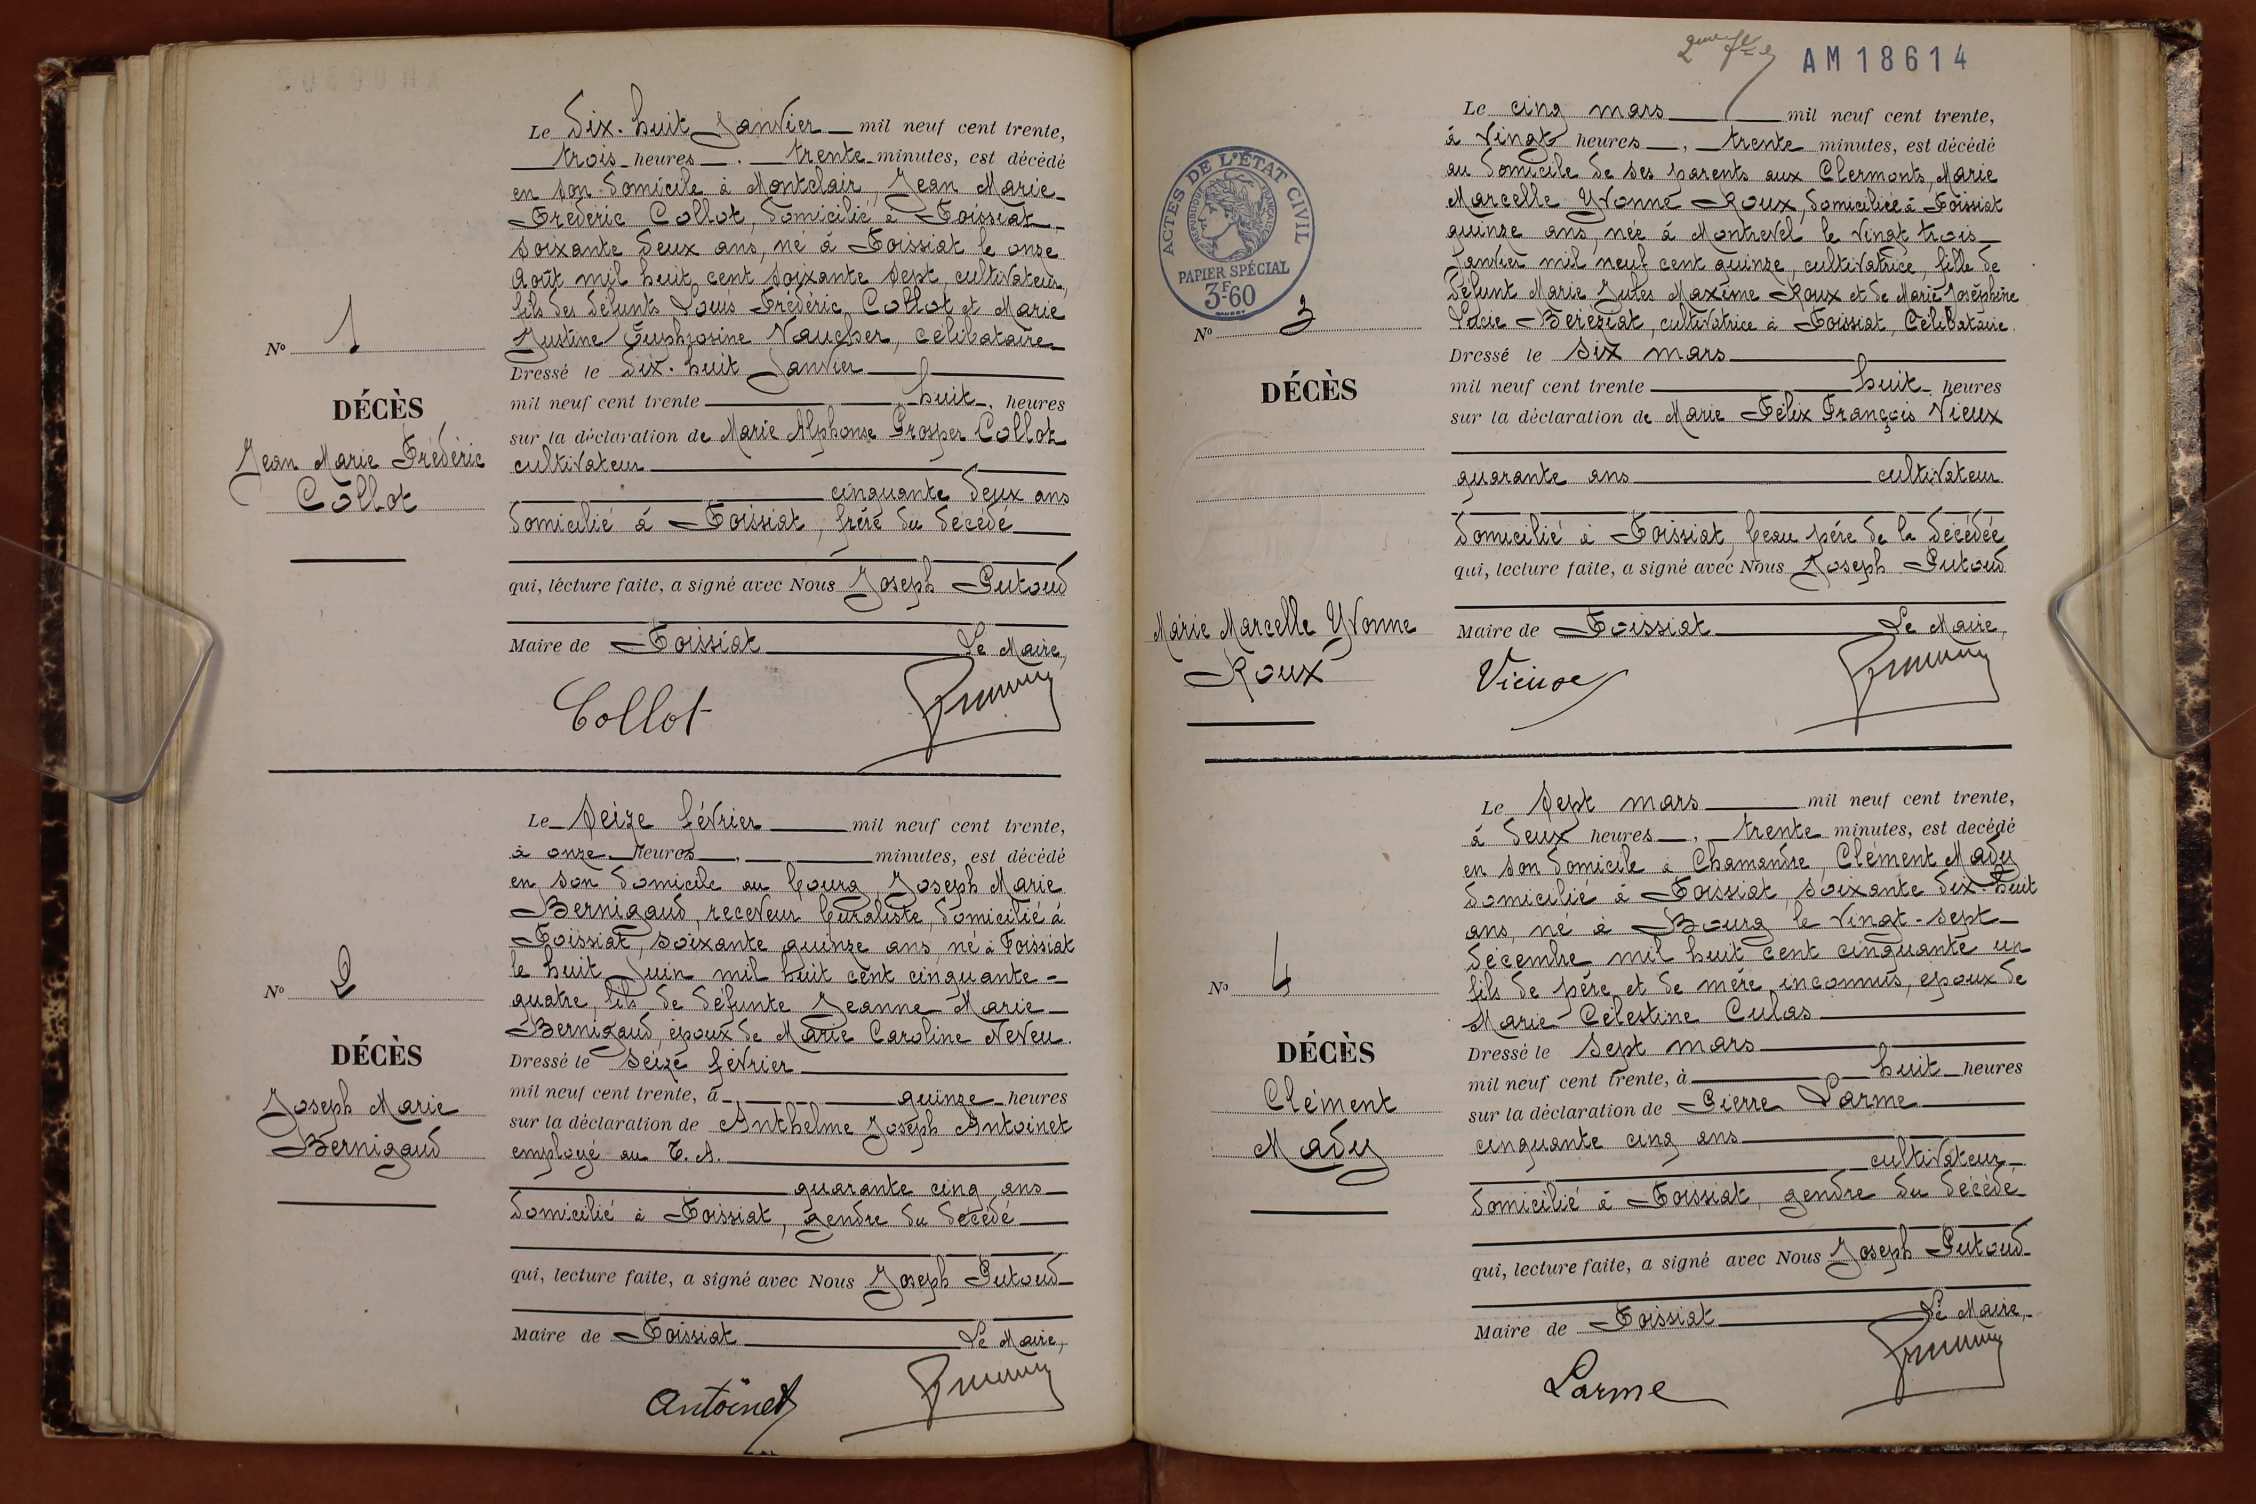 Le Dix-huit Janvier mil neuf cent trente,
trois heures trente minutes, est décédé
en son domicile à Montclair, Jean Marie
Frédéric Collot, domicilié à Foissiat
soixante deux ans, né à Foissiat le onze
Août mil huit cent soixante sept, cultivateur,
fils des défunts Louis Frédéric Collot et Marie
Justine Euphrosine Vaucher, célibataire
Dressé le dix-huit Janvier
mil neuf cent trente huit heures
sur la déclaration de Marie Alphonse Prosper Collot
cultivateur
cinquante deux ans
domicilié à Foissiat, frère du décédé
qui, lecture faite, a signé avec Nous Joseph Putoud
Maire de Foissiat Le Maire,
Collot
No 1
DÉCÈS
Jean Marie Frédéric
Collot
Le Seize février mil neuf cent trente,
à onze heures, minutes, est décédé
en son domicile au bourg, Joseph Marie
Bernigaud, receveur buraliste, domicilié à
Foissiat, soixante quinze ans, né à Foissiat
le huit Juin mil huit cent cinquante-
quatre, fils de défunte Jeanne Marie
Bernigaud, époux de Marie Caroline Neveu.
Dressé le seize février
mil neuf cent trente, à quinze heures
sur la déclaration de Anthelme Joseph Antoinet
employé au T.A.
quarante cinq ans
domicilié à Foissiat, gendre du décédé
qui, lecture faite, a signé avec Nous Joseph Putoud
Maire de Foissiat Le Maire,
Antoinet
No 2
DÉCÈS
Joseph Marie
Bernigaud
AM18614
ACTES DE L'ÉTAT CIVIL
RÉPUBLIQUE FRANÇAISE
PAPIER SPÉCIAL
3F.60
Le cinq mars mil neuf cent trente,
à vingt heures, trente minutes, est décédé
au domicile de ses parents aux Clermonts, Marie
Marcelle Yvonne Roux, domiciliée à Foissiat
quinze ans, née à Montrevel le vingt trois
Janvier mil neuf cent quinze, cultivatrice, fille de
défunt Marie Jules Maxime Roux et de Marie Joséphine
Lucie Bereziat, cultivatrice à Foissiat, Célibataire.
Dressé le six mars
mil neuf cent trente huit heures
sur la déclaration de Marie Félix François Vieux
quarante ans cultivateur
domicilié à Foissiat, beau père de la décédée
qui, lecture faite, a signé avec Nous Joseph Putoud
Maire de Foissiat Le Maire,
Vieux
No 3
DÉCÈS
Marie Marcelle Yvonne
Roux
Le Sept mars mil neuf cent trente,
à deux heures, trente minutes, est decédé
en son domicile à Chamandre, Clément Mady
domicilié à Foissiat, soixante dix-huit
ans, né à Bourg le vingt-sept
décembre mil huit cent cinquante un
fils de père et de mère inconnus, epoux de
Marie Célestine Culas
Dressé le Sept mars
mil neuf cent trente, à huit heures
sur la déclaration de Pierre Larme
cinquante cinq ans
cultivateur
domicilié à Foissiat, gendre du décédé
qui, lecture faite, a signé avec Nous Joseph Putoud
Maire de Foissiat Le Maire,
Larme
No 4
DÉCÈS
Clément
Mady